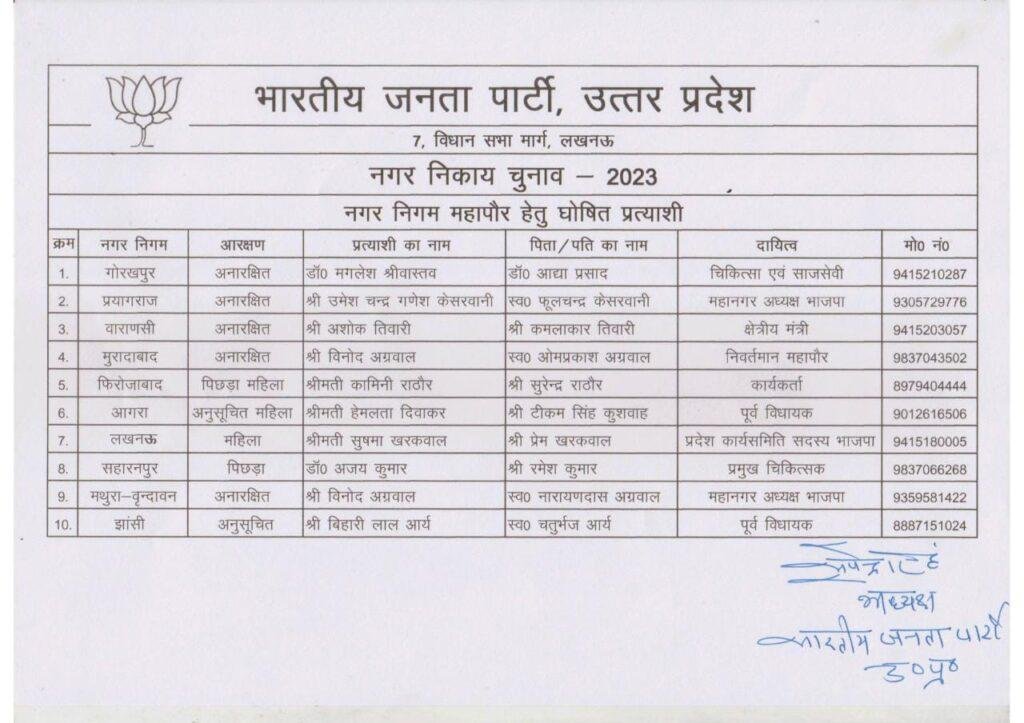 भारतीय जनता पार्टी, उत्तर प्रदेश
7, विधान सभा मार्ग, लखनऊ
नगर निकाय चुनाव – 2023
नगर निगम महापौर हेतु घोषित प्रत्याशी
क्रम नगर निगम आरक्षण प्रत्याशी का नाम पिता/पति का नाम दायित्व मो0 नं0
1. गोरखपुर अनारक्षित डॉ0 मगलेश श्रीवास्तव डॉ0 आद्या प्रसाद चिकित्सा एवं साजसेवी 9415210287
2. प्रयागराज अनारक्षित श्री उमेश चन्द्र गणेश केसरवानी स्व0 फूलचन्द्र केसरवानी महानगर अध्यक्ष भाजपा 9305729776
3. वाराणसी अनारक्षित श्री अशोक तिवारी श्री कमलाकार तिवारी क्षेत्रीय मंत्री 9415203057
4. मुरादाबाद अनारक्षित श्री विनोद अग्रवाल स्व0 ओमप्रकाश अग्रवाल निवर्तमान महापौर 9837043502
5. फिरोजाबाद पिछड़ा महिला श्रीमती कामिनी राठौर श्री सुरेन्द्र राठौर कार्यकर्ता 8979404444
6. आगरा अनुसूचित महिला श्रीमती हेमलता दिवाकर श्री टीकम सिंह कुशवाह पूर्व विधायक 9012616506
7. लखनऊ महिला श्रीमती सुषमा खरकवाल श्री प्रेम खरकवाल प्रदेश कार्यसमिति सदस्य भाजपा 9415180005
8. सहारनपुर पिछड़ा डॉ0 अजय कुमार श्री रमेश कुमार प्रमुख चिकित्सक 9837066268
9. मथुरा–वृन्दावन अनारक्षित श्री विनोद अग्रवाल स्व0 नारायणदास अग्रवाल महानगर अध्यक्ष भाजपा 9359581422
10. झांसी अनुसूचित श्री बिहारी लाल आर्य स्व0 चतुर्भज आर्य पूर्व विधायक 8887151024
अध्यक्ष
भारतीय जनता पार्टी
उ0प्र0